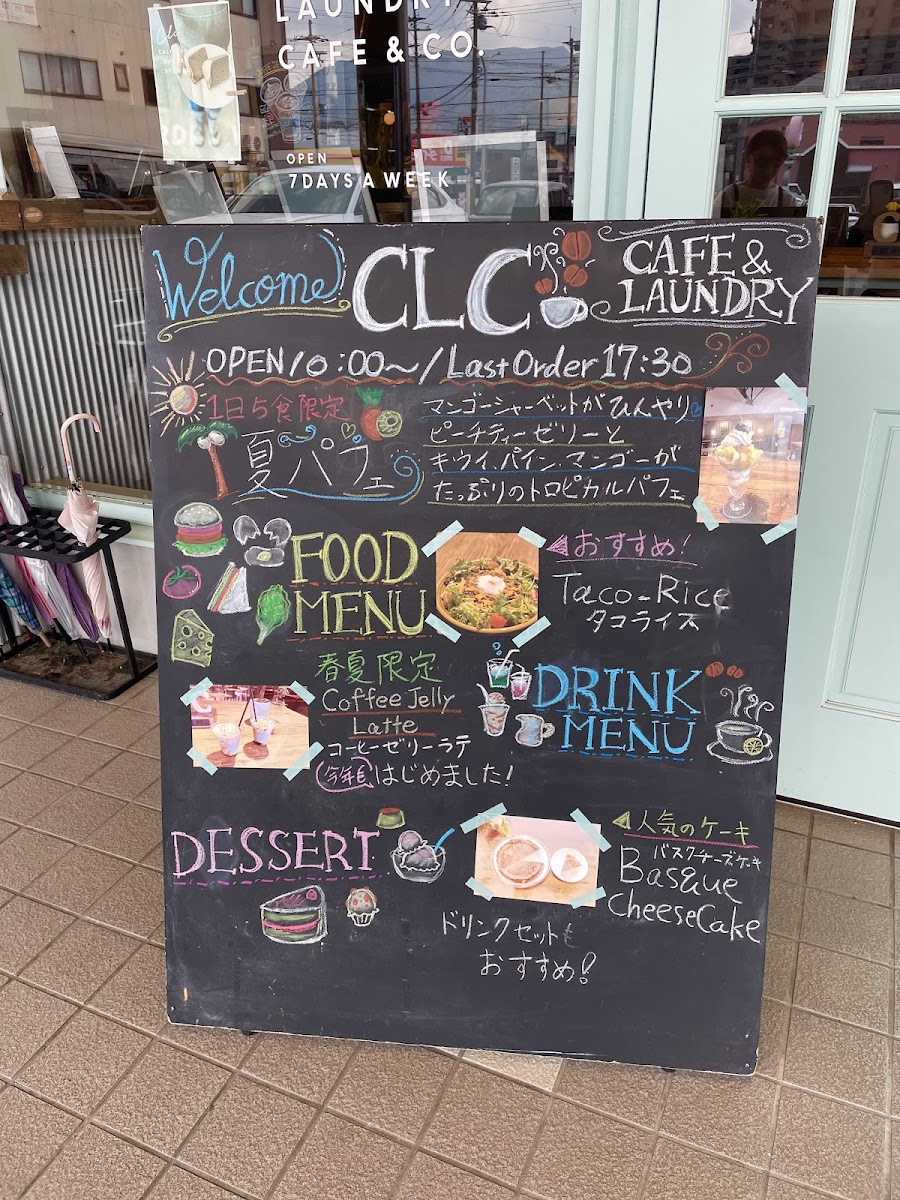 LAUNDRY
CAFE & CO.
OPEN
7 DAYS A WEEK
Welcome CLC CAFE &
LAUNDRY
OPEN 10:00〜/Last Order 17:30
1日5食限定
夏パフェ
マンゴーシャーベットがひんやり
ピーチティーゼリーと
キウイ、パイン、マンゴーが
たっぷりのトロピカルパフェ
FOOD
MENU
おすすめ!
Taco-Rice
タコライス
春夏限定
Coffee Jelly
Latte
コーヒーゼリーラテ
今年もはじめました!
DRINK
MENU
DESSERT
人気のケーキ
バスクチーズケーキ
Basque
CheeseCake
ドリンクセットも
おすすめ!